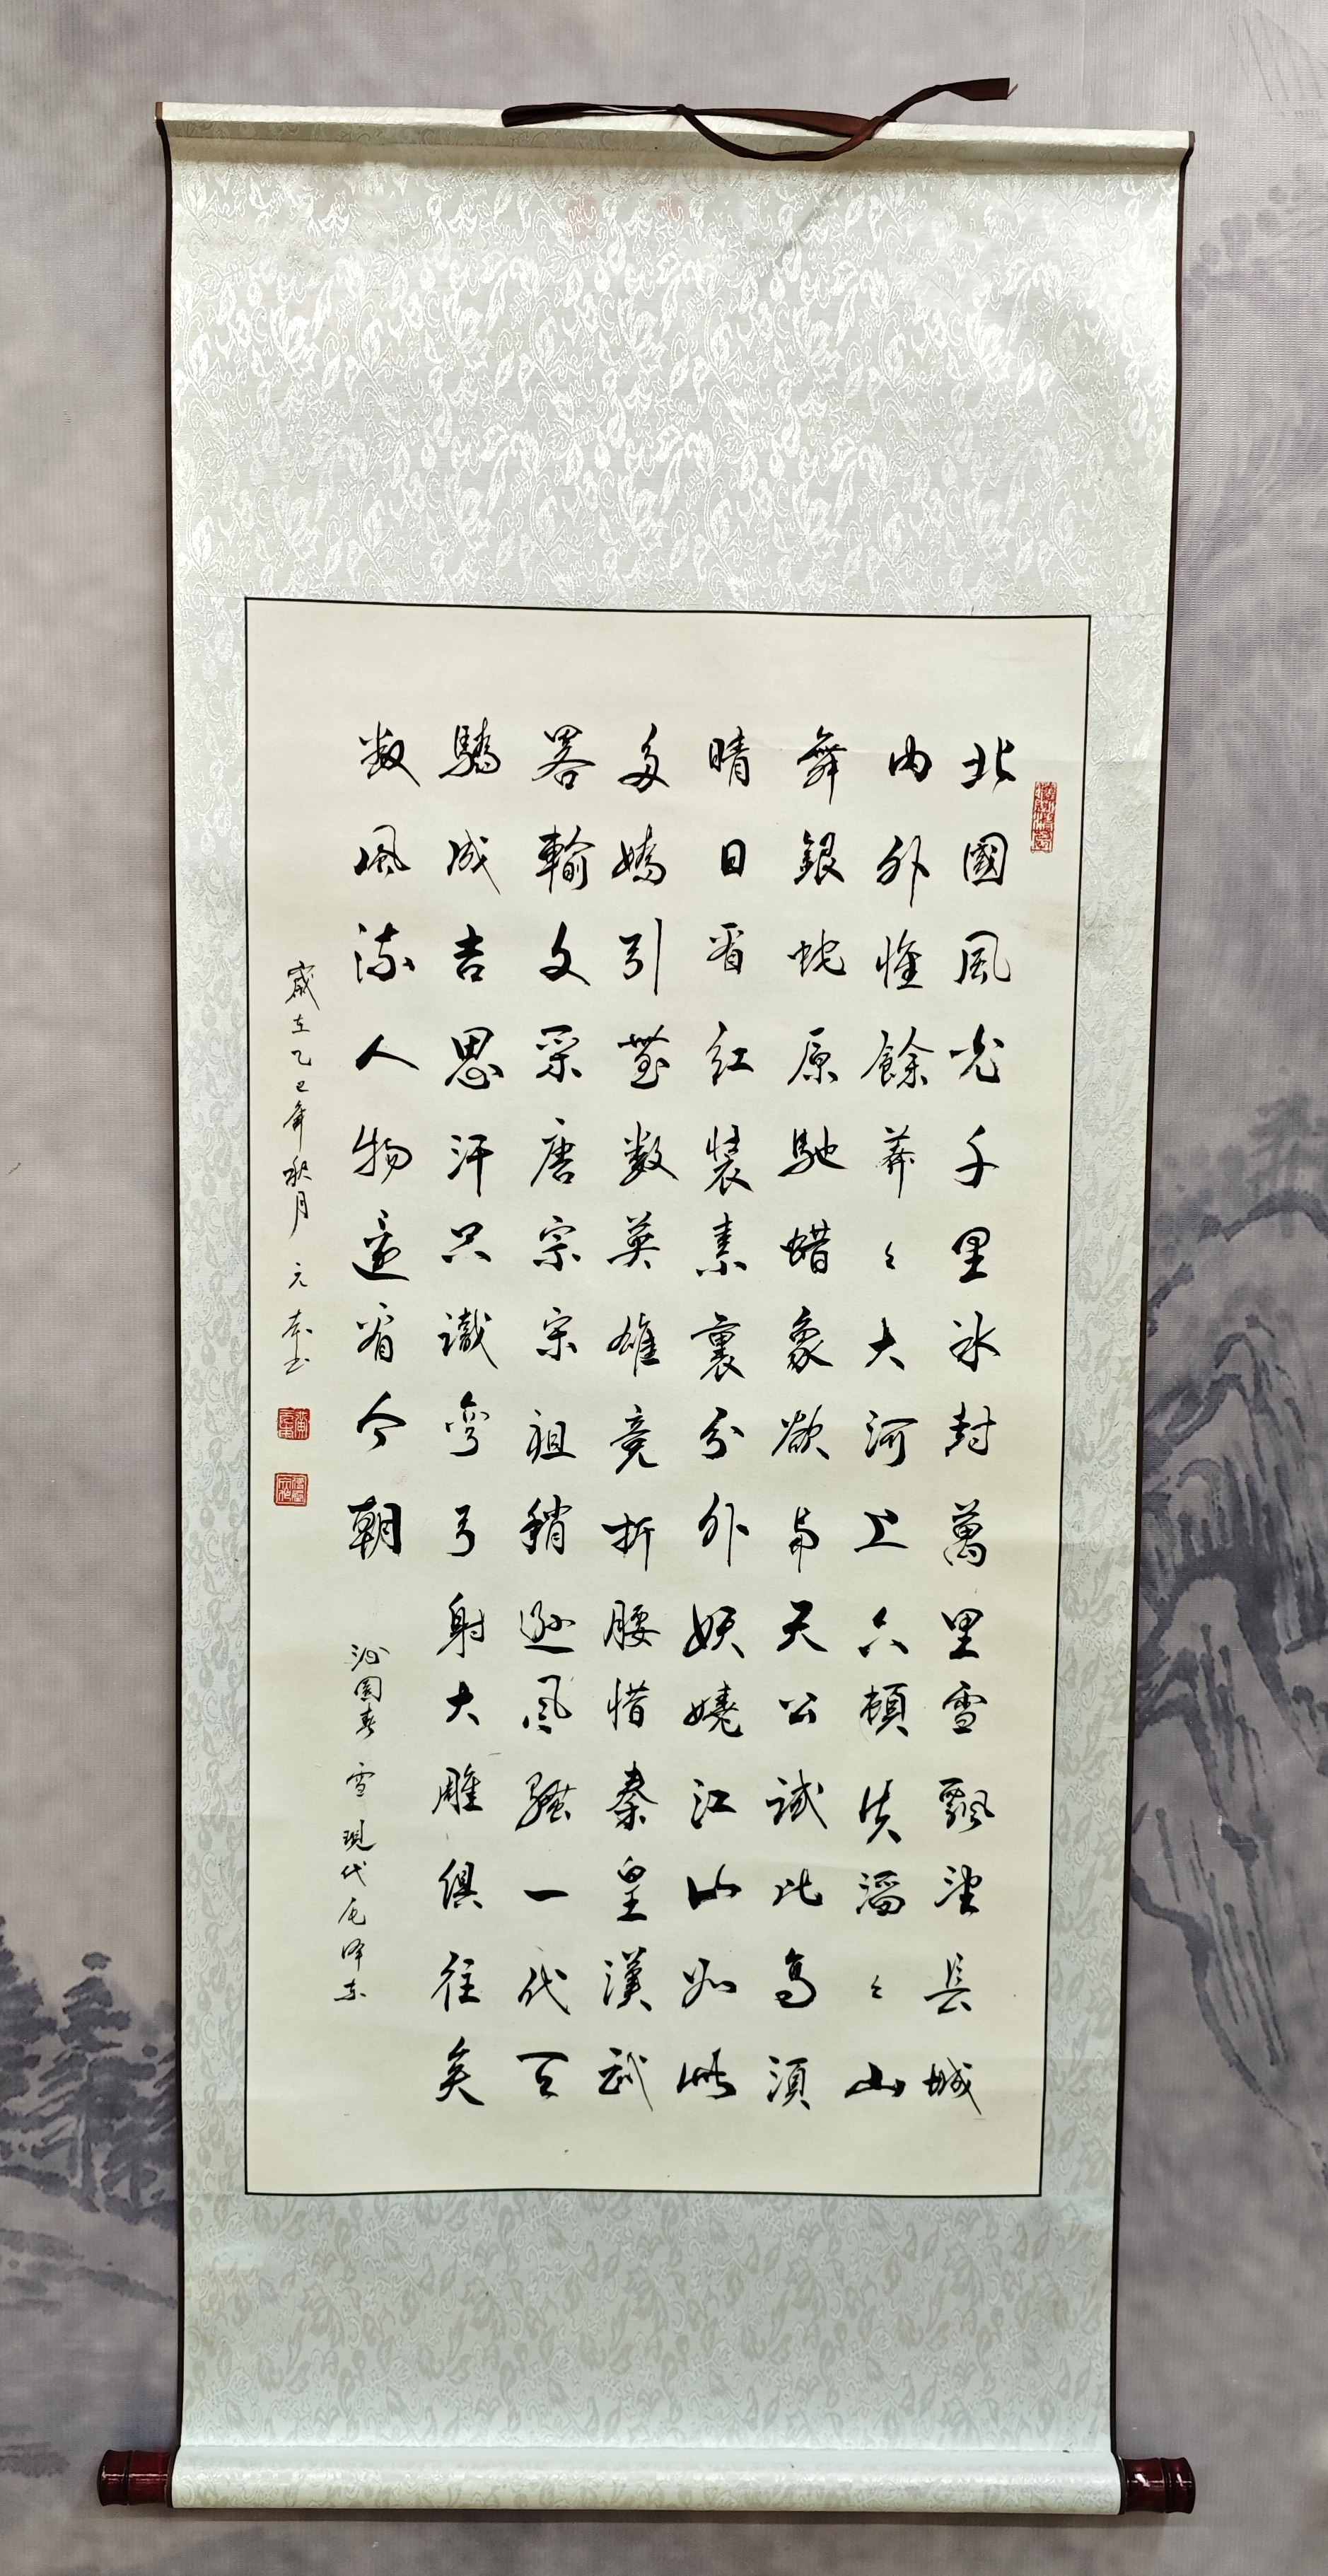 北國風光千里冰封萬里雪飄望長城
内外惟餘莽々大河上下頓失滔々山
舞銀蛇原馳蜡象欲与天公試比高須
晴日看紅裝素裏分外妖嬈江山如此
多嬌引無数英雄竞折腰惜秦皇漢武
畧輸文采唐宗宋祖稍遜風騷一代天
驕成吉思汗只識彎弓射大雕俱往矣
数風流人物還看今朝
沁園春 雪 現代 毛泽东
歲在乙巳年秋月 元